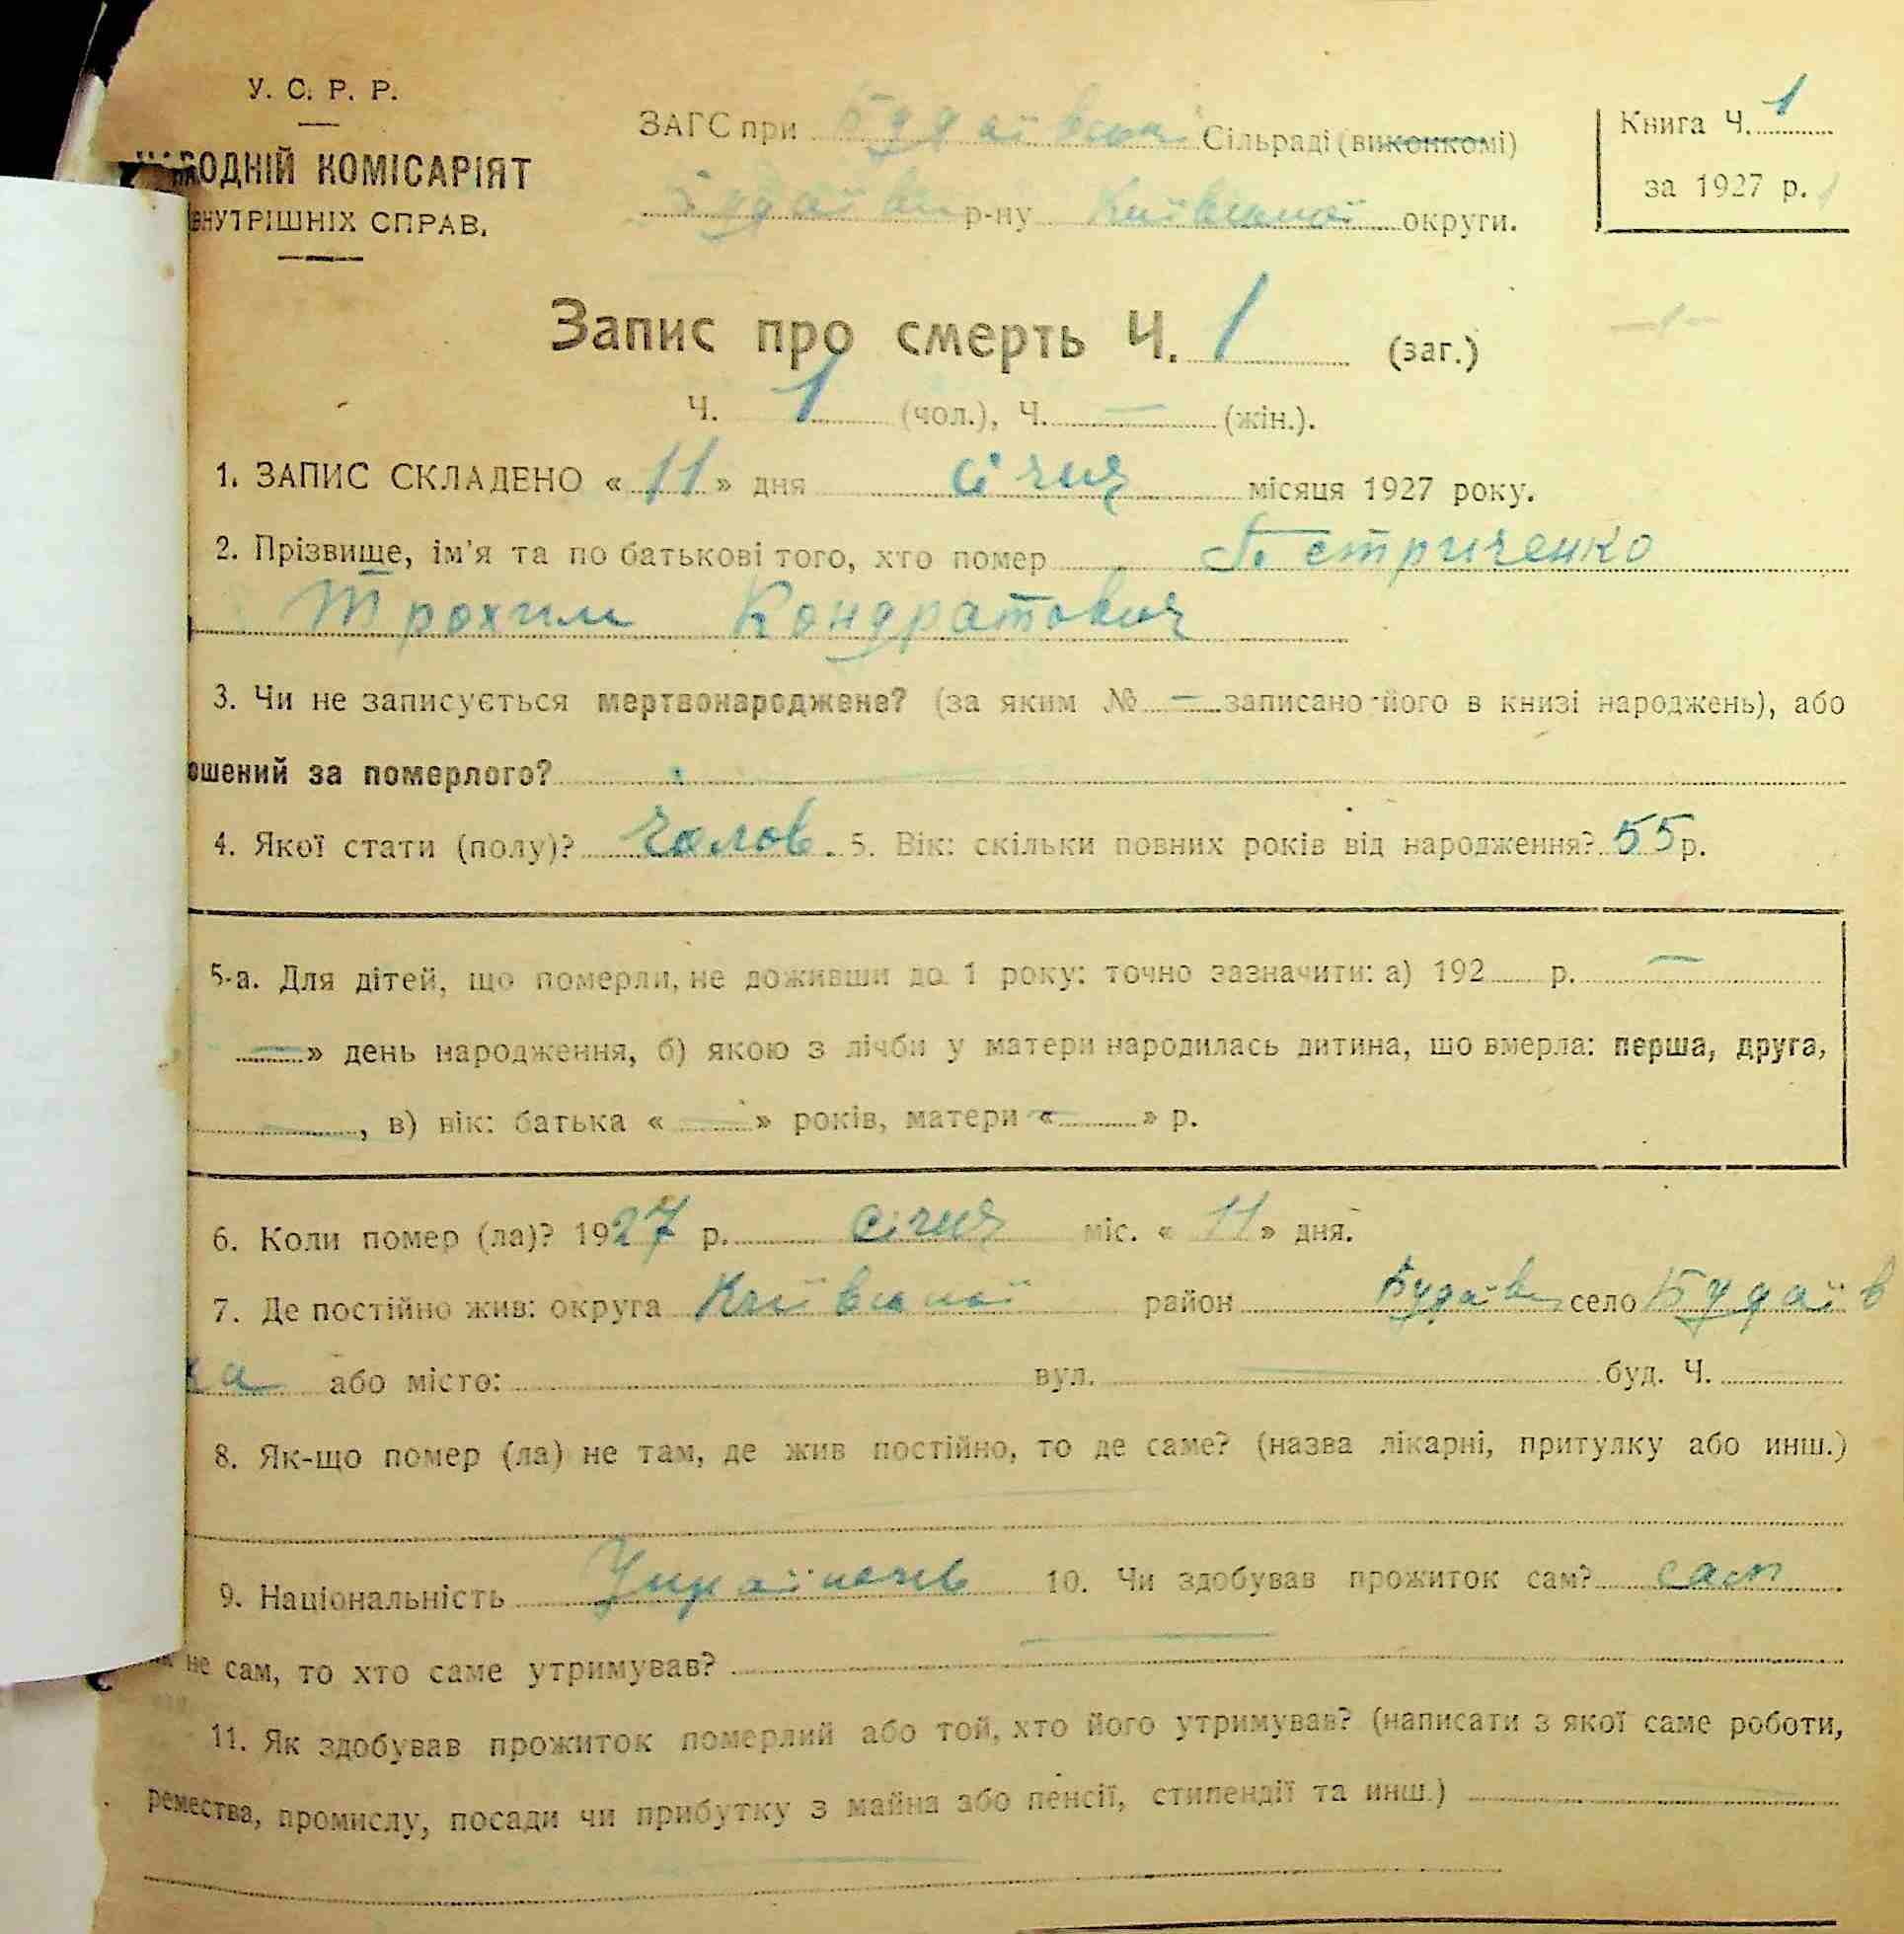 У. С. Р. Р.
НАРОДНІЙ КОМІСАРІЯТ
ВНУТРІШНІХ СПРАВ.
ЗАГС при Будаївській Сільраді (виконкомі)
Будаївськ р-ну Київської округи.
Книга Ч. 1
за 1927 р.
Запис про смерть Ч. 1 (заг.)
Ч. 1 (чол.), Ч. — (жін.).
1. ЗАПИС СКЛАДЕНО « 11 » дня січня місяця 1927 року.
2. Прізвище, ім'я та по батькові того, хто помер Петриченко
Трохим Кондратович
3. Чи не записується мертвонароджене? (за яким № — записано його в книзі народжень), або
ошений за померлого?
4. Якої стати (полу)? Чолов. 5. Вік: скільки повних років від народження? 55 р.
5-а. Для дітей, що померли, не доживши до 1 року: точно зазначити: а) 192 р. —
— » день народження, б) якою з лічби у матери народилась дитина, що вмерла: перша, друга,
—, в) вік: батька « — » років, матери « — » р.
6. Коли помер (ла)? 1927 р. січня міс. « 11 » дня.
7. Де постійно жив: округа Київської район Будаївськ село Будаїв
ка або місто: вул. — буд. Ч.
8. Як-що помер (ла) не там, де жив постійно, то де саме? (назва лікарні, притулку або инш.)
—
9. Національність Українець 10. Чи здобував прожиток сам? сам
як не сам, то хто саме утримував? —
11. Як здобував прожиток померлий або той, хто його утримував? (написати з якої саме роботи,
ремества, промислу, посади чи прибутку з майна або пенсії, стипендії та инш.) —